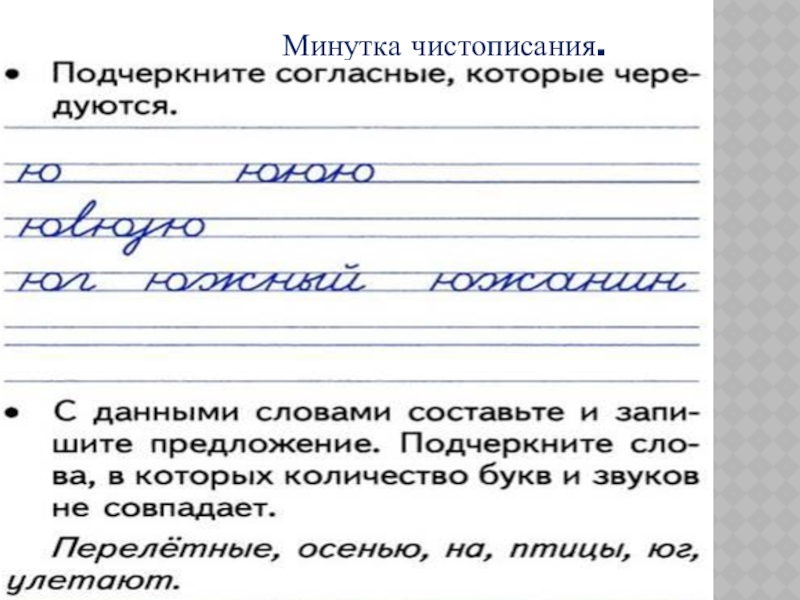 Минутка чистописания.
• Подчеркните согласные, которые чере-
дуются.
ю ююю
ювюзю
юг южный южанин
• С данными словами составьте и запи-
шите предложение. Подчеркните сло-
ва, в которых количество букв и звуков
не совпадает.
Перелётные, осенью, на, птицы, юг,
улетают.